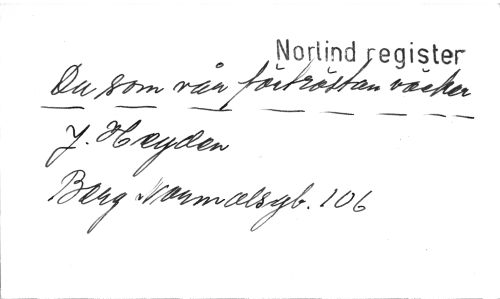 Norlind register
Du som vår förtröstan väcker
J. Heyden
Berg Normalsgb. 106